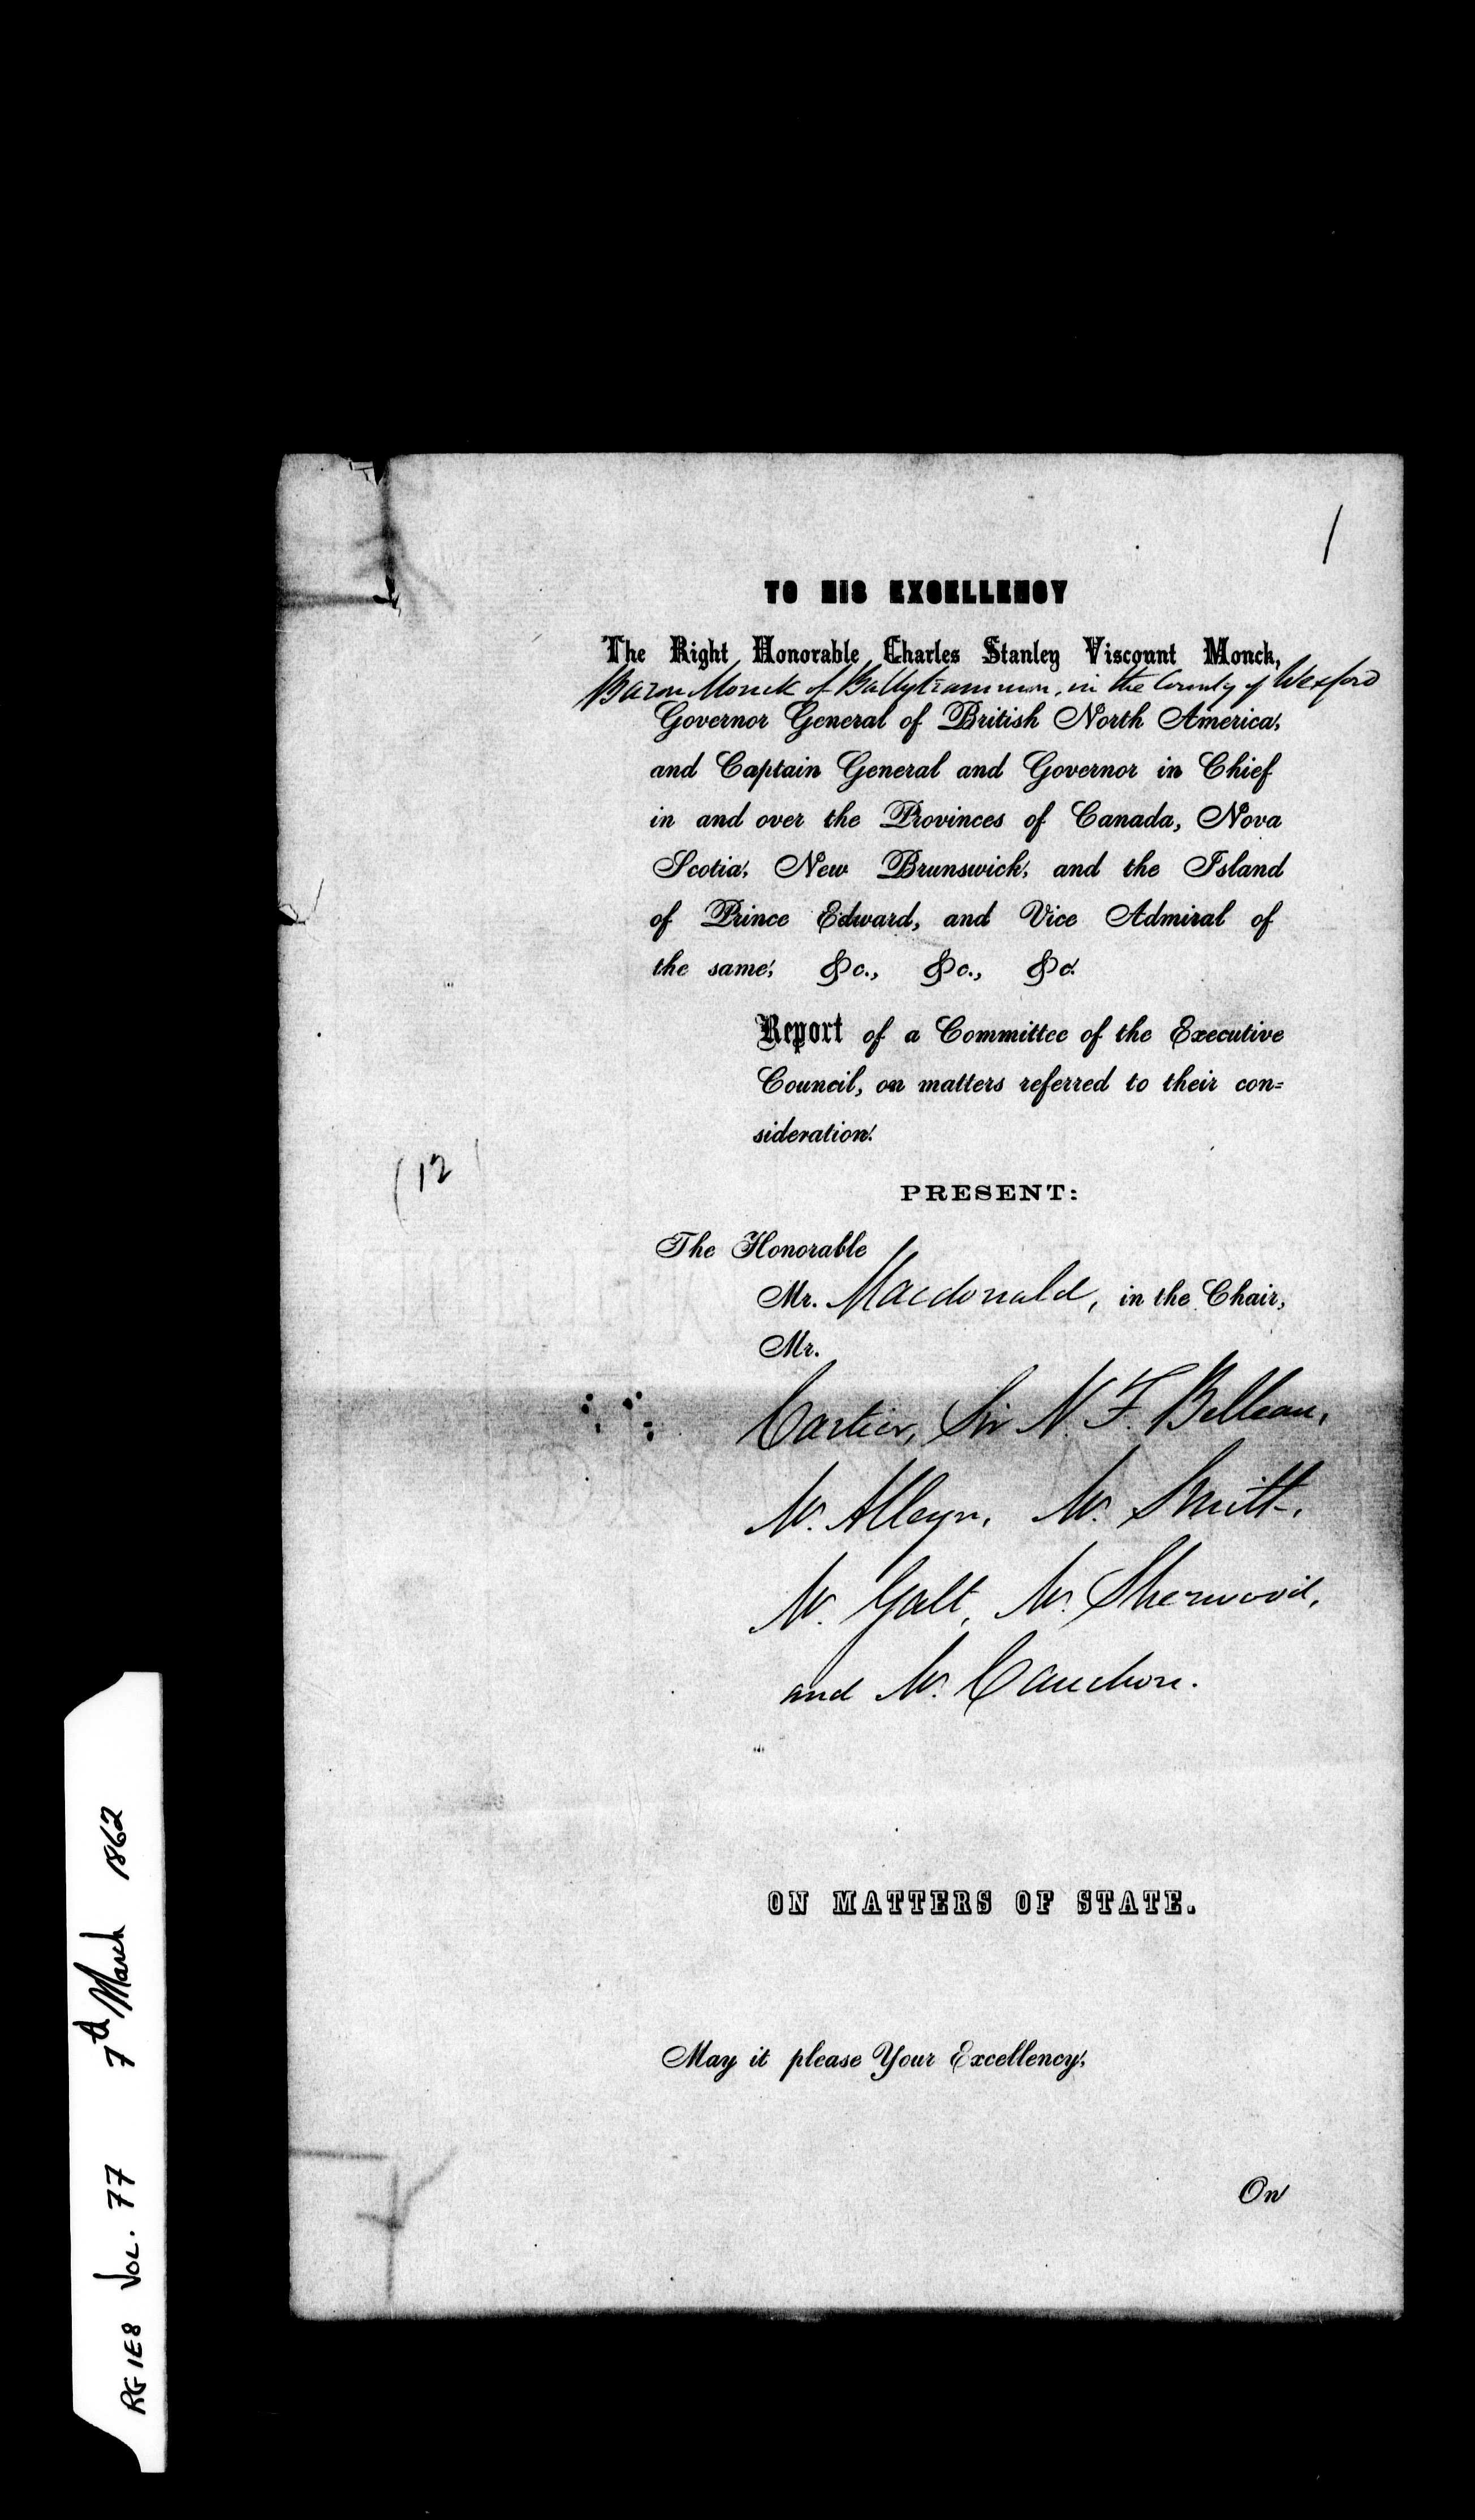 1
TO HIS EXCELLENCY
The Right Honorable Charles Stanley Viscount Monck,
Baron Monck of Ballytrammon, in the County of Wexford
Governor General of British North America,
and Captain General and Governor in Chief
in and over the Provinces of Canada, Nova
Scotia, New Brunswick, and the Island
of Prince Edward, and Vice Admiral of
the same, &c., &c., &c.
Report of a Committee of the Executive
Council, on matters referred to their con=
sideration.
(12
PRESENT:
The Honorable
Mr. Macdonald, in the Chair,
Mr.
Cartier, Sir N. F. Belleau,
Mr. Alleyn, Mr. Smith,
Mr. Galt, Mr. Sherwood,
and Mr. Cauchon.
ON MATTERS OF STATE.
May it please Your Excellency,
On
RG 1E8 VOL. 77 7th March 1862